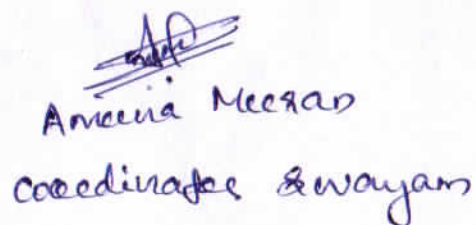 Ameena Meeran
Coordinator Swayam